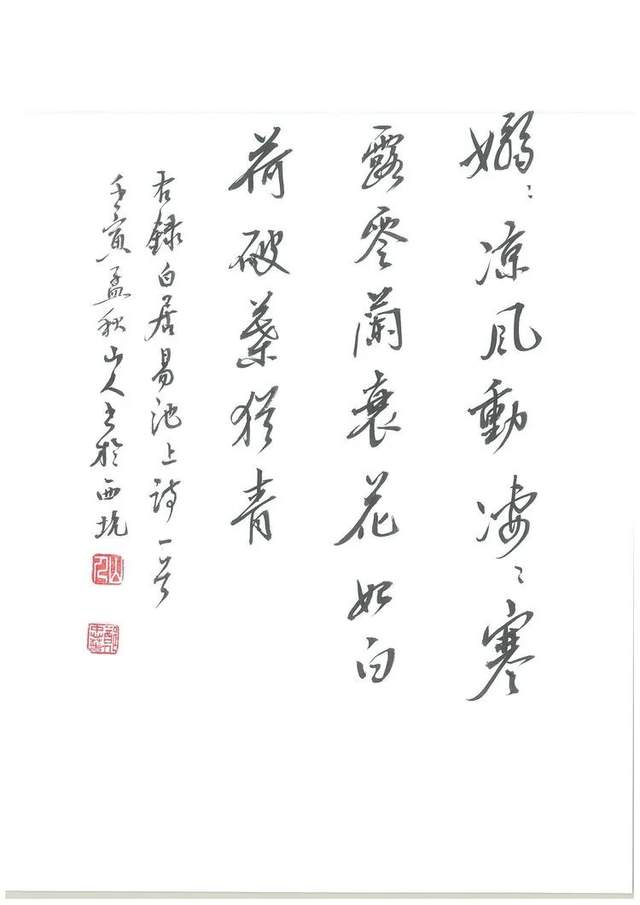 嫋〻凉風動凄〻寒
露零蘭衰花始白
荷破葉猶青
右録白居易池上詩一首
壬寅孟秋山人書於西坑
山人